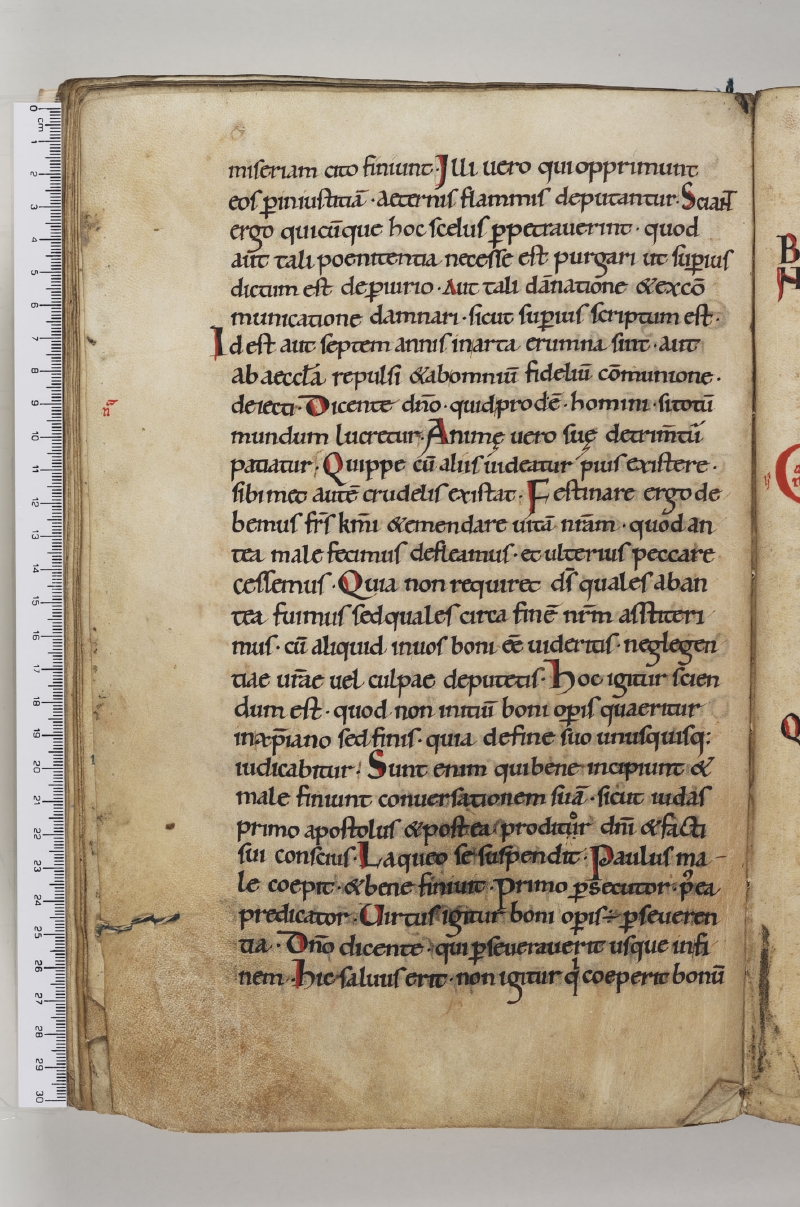 miseriam cito finiunt. Illi uero qui opprimunt
eos p̱ iniustitiā · aeternis flammis deputantur. Sciant
ergo quicūque hoc scelus p̱petrauerint · quod
aut̄ tali poenitentia necesse est purgari ut sup̱ius
dictum est de p̱iurio · Aut tali dānatione & excō
municatione damnari · sicut sup̱ius scriptum est ·
Id est aut septem annis in arta erumna sint · aut
ab aeccła repulsi & ab omniū fideliū cōmunione ·
deiecti · Dicente dn̄o · quid prodē · homini · si totū
mundum lucretur · Animę uero suę detrim̄tū
patiatur · Quippe cū aliis uideatur pius existere ·
sibimet autē crudelis existat · Festinare ergo de
bemus fr̄s km̄i & emendare uitā nr̄am · quod an
tea male fecimus defleamus · et ulterius peccare
cessemus · Quia non requiret ds̄ quales aban
tea fuimus sed quales circa finē nr̄m asstiteri
mus · cū aliquid in uos boni eē uideritis · neglegen
tiae ur̄ae uel culpae deputetis · Hoc igitur scien
dum est · quod non initiū boni op̱is quaeritur
in xp̄iano sed finis · quia de fine suo unusquisq:
iudicabitur · Sunt enim qui bene incipiunt &
male finiunt conuersationem suā · sicut iudas
primo apostolus & postea proditor dn̄i & facti
sui conscius · Laqueo se suspendit · Paulus ma-
le coepit · & bene finiuit · Primo p̱secutor · p̉ea
predicator · Uirtus igitur boni op̱is p̱seueren
tia · Dn̄o dicente · qui p̱seuerauerit usque in fi
nem · Hic saluus erit · non igitur q̇ coeperit bonū